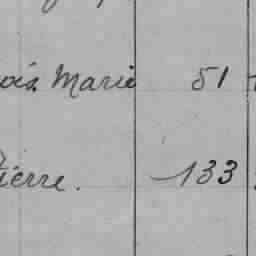 Marie 51
ierre. 133